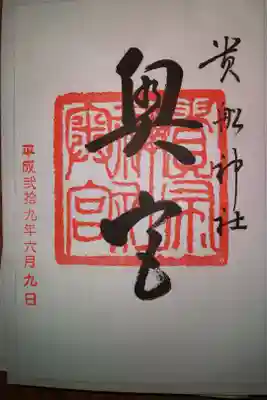 貴船神社
奥宮
平成弐拾九年六月九日